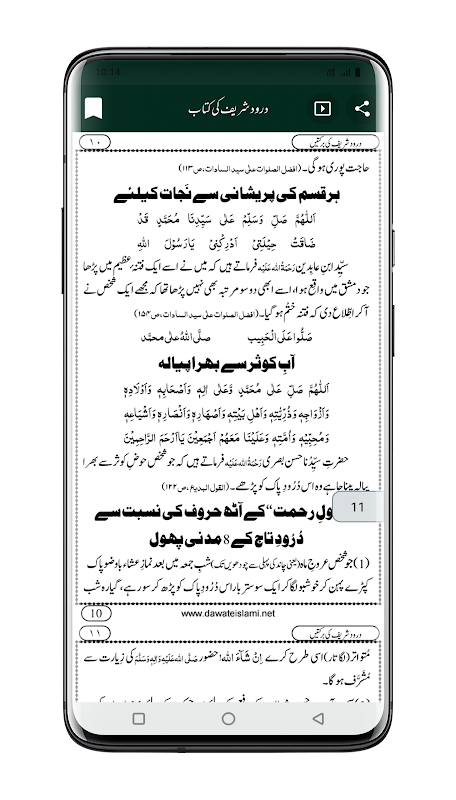 10:14
درود شریف کی کتاب
درود شریف کی برکتیں ۱۰
حاجت پوری ہوگی۔ (افضل الصلوات علی سید السادات، ص۱۱۳)
ہر قسم کی پریشانی سے نجات کیلئے
اَللّٰهُمَّ صَلِّ وَسَلِّمْ عَلٰى سَيِّدِنَا مُحَمَّدٍ قَدْ
ضَاقَتْ حِيْلَتِيْ اَدْرِكْنِيْ يَارَسُوْلَ اللهِ
سیّد ابنِ عابدین رَحْمَةُ اللہِ عَلَیْہ فرماتے ہیں کہ میں نے اسے ایک فتنۂ عظیم میں پڑھا
جو دمشق میں واقع ہوا، اسے ابھی دو سو مرتبہ بھی نہیں پڑھا تھا کہ مجھے ایک شخص نے
آکر اطِّلاع دی کہ فتنہ ختم ہوگیا۔ (افضل الصلوات علی سید السادات، ص۱۵۴)
صَلُّوْا عَلَى الْحَبِيْب صلَّى اللهُ على محمَّد
آبِ کوثر سے بھرا پیالہ
اَللّٰهُمَّ صَلِّ عَلٰى مُحَمَّدٍ وَّعَلٰى اٰلِهٖ وَاَصْحَابِهٖ وَاَوْلَادِهٖ
وَاَزْوَاجِهٖ وَذُرِّيَّتِهٖ وَاَهْلِ بَيْتِهٖ وَاَصْهَارِهٖ وَاَنْصَارِهٖ وَاَشْيَاعِهٖ
وَمُحِبِّيْهِ وَاُمَّتِهٖ وَعَلَيْنَا مَعَهُمْ اَجْمَعِيْنَ يَآاَرْحَمَ الرَّاحِمِيْنَ
حضرتِ سیّدُنا حسن بصری رَحْمَةُ اللہِ عَلَیْہ فرماتے ہیں کہ جو شخص حوضِ کوثر سے بھرا
پیالہ پینا چاہے وہ اس دُرُودِ پاک کو پڑھے۔ (القول البدیع، ص۱۲۲)
ولِ رحمت“ کے آٹھ حروف کی نسبت سے
11
دُرُودِ تاج کے 8 مدنی پھول
(1) جو شخص عروجِ ماہ (یعنی چاند کی پہلی سے چودھویں تک) شبِ جمعہ میں بعد نمازِ عشاء باوضو پاک
کپڑے پہن کر خوشبو لگا کر ایک سو ستر بار اس دُرُودِ پاک کو پڑھ کر سو رہے، گیارہ شب
10
www.dawateislami.net
درود شریف کی برکتیں ۱۱
مُتواتِر (لگاتار) اسی طرح کرے اِنْ شَآءَ اللہ! حضور صَلَّی اللہُ عَلَیْہِ وَاٰلِہٖ وَسَلَّم کی زِیارت سے
مشرَّف ہوگا۔